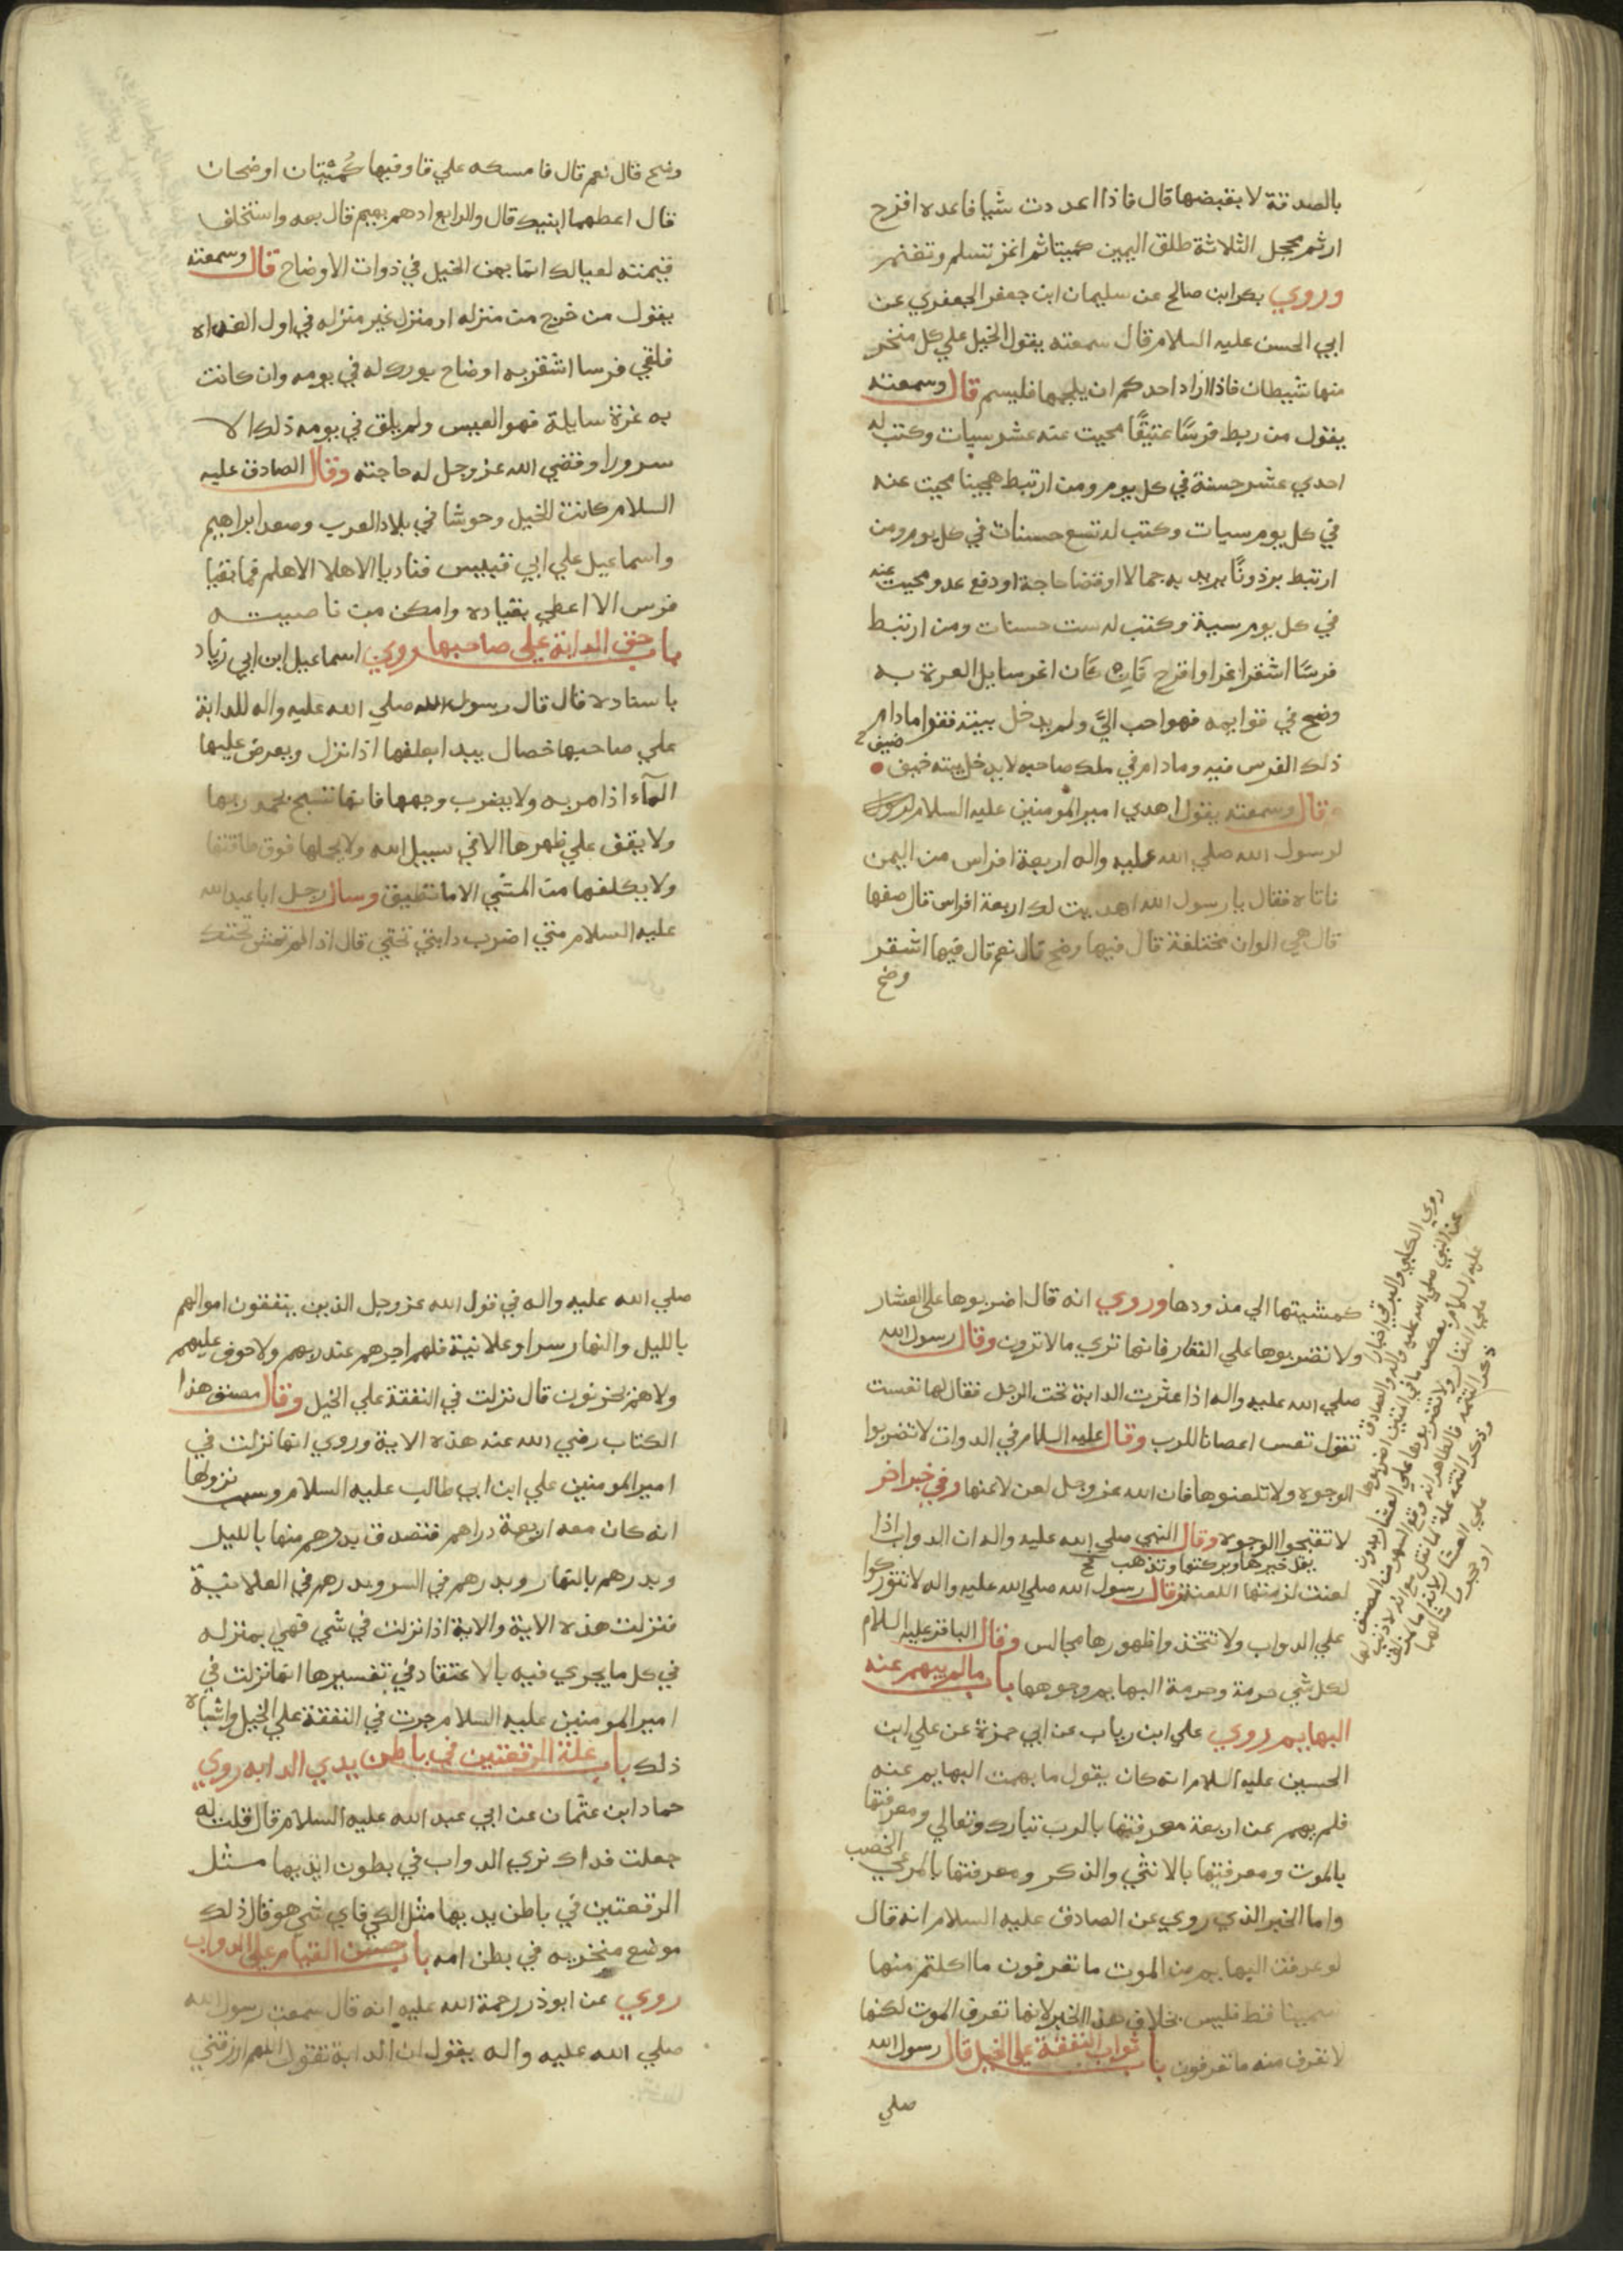 بالصدقة لا يقبضها قال فاذا اعددت شيا فاعده اقرح
ارثم محجل الثلاثة طلق اليمين كميتا ثم اغز تسلم وتغنم
وروي بكر ابن صالح عن سليمان ابن جعفر الجعفري عن
ابي الحسن عليه السلام قال سمعته يقول الخيل علي كل منخر
منها شيطان فاذا اراد احدكم ان يلجمها فليسم قال وسمعته
يقول من ربط فرسًا عتيقًا محيت عنه عشر سيات وكتب له
احدي عشر حسنة في كل يوم ومن ارتبط هجينا محيت عنه
في كل يوم سيات وكتب له تسع حسنات في كل يوم ومن
ارتبط برذونًا يريد به جمالا او قضا حاجة او دفع عدو محيت عنه
في كل يوم سية وكتب له ست حسنات ومن ارتبط
فرسًا اشقر اغر او اقرح فان كان اغر سايل الغرة به
وضح في قوايمه فهو احب اليّ ولم يدخل بيته فقر ما دام
ذلك الفرس فيه وما دام في ملك صاحبه لا يدخل بيته ضيق
وقال وسمعته يقول اهدي امير المومنين عليه السلام
لرسول الله صلي الله عليه واله اربعة افراس من اليمن
فاتاه فقال يا رسول الله اهديت لك اربعة افراس قال صفها
قال هي الوان مختلفة قال فيها وضح قال نعم قال فيها اشقر
وضح
وضح قال نعم قال فامسكه علي قا وفيها كُميتان اوضحان
قال اعطهما ابنيك قال والرابع ادهم بهيم قال بعه واستخلف
قيمته لعيالك انما يمن الخيل في ذوات الاوضاح قال وسمعته
يقول من خرج من منزله او منزل غير منزله في اول الغداه
فلقي فرسا اشقر به اوضاح بورك له في يومه وان كانت
به غرة سايلة فهو العيس ولم يلق في يومه ذلك الا
سرورا وقضي الله عز وجل له حاجته وقال الصادق عليه
السلام كانت الخيل وحوشا في بلاد العرب وصعد ابراهيم
واسماعيل علي ابي قبيس فناديا الا هلا الا هلم فما بقيا
فرس الا اعطي بقياده وامكن من ناصيته
باب حق الدابة علي صاحبها روي اسماعيل ابن ابي زياد
باسناده قال قال رسول الله صلي الله عليه واله للدابة
علي صاحبها خصال يبدا بعلفها اذا نزل ويعرض عليها
المآء اذا مر به ولا يضرب وجهها فانها تسبح بحمد ربها
ولا يقف علي ظهرها الا في سبيل الله ولا يحملها فوق طاقتها
ولا يكلفها من المشي الا ما تطيق وسال رجل ابا عبد الله
عليه السلام متي اضرب دابتي تحتي قال اذا لم تمش تحتك
كمشيتها الي مذودها وروي انه قال اضربوها علي العثار
ولا تضربوها علي النفار فانها تري ما لا ترون وقال رسول الله
صلي الله عليه واله اذا عثرت الدابة تحت الرجل فقال لها تعست
تقول تعس اعصانا للرب وقال عليه السلام في الدواب لا تضربوا
الوجوه ولا تلعنوها فان الله عز وجل لعن لاعنها وفي خبر اخر
لا تقبحوا الوجوه وقال النبي صلي الله عليه واله ان الدواب اذا
لعنت لزمتها اللعنة وقال رسول الله صلي الله عليه واله لا تتوركوا
علي الدواب ولا تتخذوا ظهورها مجالس وقال الباقر عليه السلام
لكل شي حرمة وحرمة البهايم وجوهها باب ما لم يبهم عنه
البهايم روي علي ابن رياب عن ابي حمزة عن علي ابن
الحسين عليه السلام انه كان يقول ما بهمت البهايم عنه
فلم يبهم عن اربعة معرفتها بالرب تبارك وتعالي ومعرفتها
بالموت ومعرفتها بالانثي والذكر ومعرفتها بالمرعي الخصب
واما الخبر الذي روي عن الصادق عليه السلام انه قال
لو عرفت البهايم من الموت ما تعرفون ما اكلتم منها
سمينا قط فليس بخلاف هذا الخبر لانها تعرف الموت لكنها
لا تعرف منه ما تعرفون باب ثواب النفقة علي الخيل قال رسول الله
صلي
صلي الله عليه واله في قول الله عز وجل الذين ينفقون اموالهم
بالليل والنهار سرا وعلانية فلهم اجرهم عند ربهم ولا خوف عليهم
ولا هم يحزنون قال نزلت في النفقة علي الخيل وقال مصنف هذا
الكتاب رضي الله عنه هذه الاية وروي انها نزلت في
امير المومنين علي ابن ابي طالب عليه السلام وسبب نزولها
انه كان معه اربعة دراهم فتصدق بدرهم منها بالليل
وبدرهم بالنهار وبدرهم في السر وبدرهم في العلانية
فنزلت هذه الاية والاية اذا نزلت في شي فهي بمنزله
في كل ما يجري فيه بالاعتقاد في تفسيرها انها نزلت في
امير المومنين عليه السلام جرت في النفقة علي الخيل واشباه
ذلك باب علة الرقعتين في باطن يدي الدابه روي
حماد ابن عثمان عن ابي عبد الله عليه السلام قال قلت له
جعلت فداك نري الدواب في بطون ايديها مثل
الرقعتين في باطن يديها مثل الكي فاي شي هو قال ذلك
موضع منخريه في بطن امه باب حسن القيام علي الدواب
روي عن ابو ذر رحمة الله عليه انه قال سمعت رسول الله
صلي الله عليه واله يقول ان الدابة تقول اللهم ارزقني